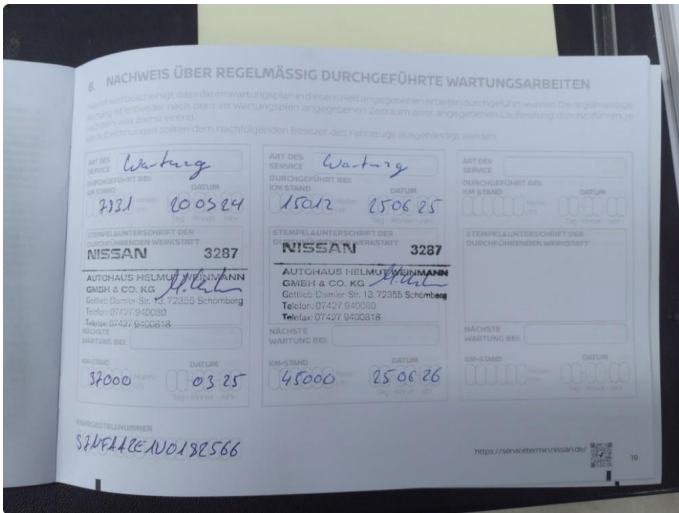 8. NACHWEIS ÜBER REGELMÄSSIG DURCHGEFÜHRTE WARTUNGSARBEITEN
ART DES SERVICE Wartung
DURCHGEFÜHRT BEI:
KM STAND DATUM
7331 20 03 24
Tag Monat Jahr
STEMPEL&UNTERSCHRIFT DER
DURCHFÜHRENDEN WERKSTATT
NISSAN 3287
AUTOHAUS HELMUT WEINMANN
GMBH & CO. KG
Gottlieb-Daimler-Str. 13, 72355 Schömberg
Telefon: 07427 940080
Telefax: 07427 9400818
NÄCHSTE
WARTUNG BEI:
KM-STAND DATUM
37000 03 25
Tag Monat Jahr
ART DES SERVICE Wartung
DURCHGEFÜHRT BEI:
KM STAND DATUM
15012 25 06 25
Tag Monat Jahr
STEMPEL&UNTERSCHRIFT DER
DURCHFÜHRENDEN WERKSTATT
NISSAN 3287
AUTOHAUS HELMUT WEINMANN
GMBH & CO. KG
Gottlieb-Daimler-Str. 13, 72355 Schömberg
Telefon: 07427 940080
Telefax: 07427 9400818
NÄCHSTE
WARTUNG BEI:
KM-STAND DATUM
45000 25 06 26
Tag Monat Jahr
ART DES SERVICE
DURCHGEFÜHRT BEI:
KM STAND DATUM
Tag Monat Jahr
STEMPEL&UNTERSCHRIFT DER
DURCHFÜHRENDEN WERKSTATT
NÄCHSTE
WARTUNG BEI:
KM-STAND DATUM
Tag Monat Jahr
FAHRGESTELLNUMMER
https://servicetermin.nissan.de/
19